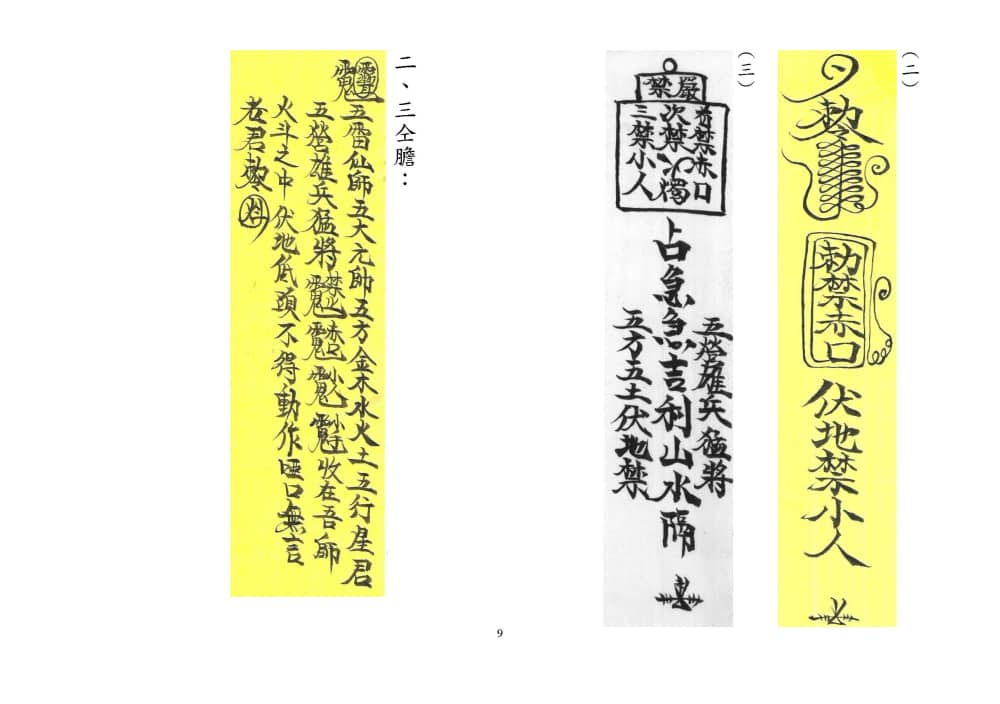 （二）
勅
勅禁赤口
伏地禁小人
（三）
嚴禁
次禁
三禁小人
占急急吉利山水隔
五營雄兵猛將
五方五土伏地禁
二、三仝膽：
五雷仙師五大元帥五方金木水火土五行星君
五營雄兵猛將
收在吾師
火斗之中伏地低頭不得動作啞口無言
老君勅
9